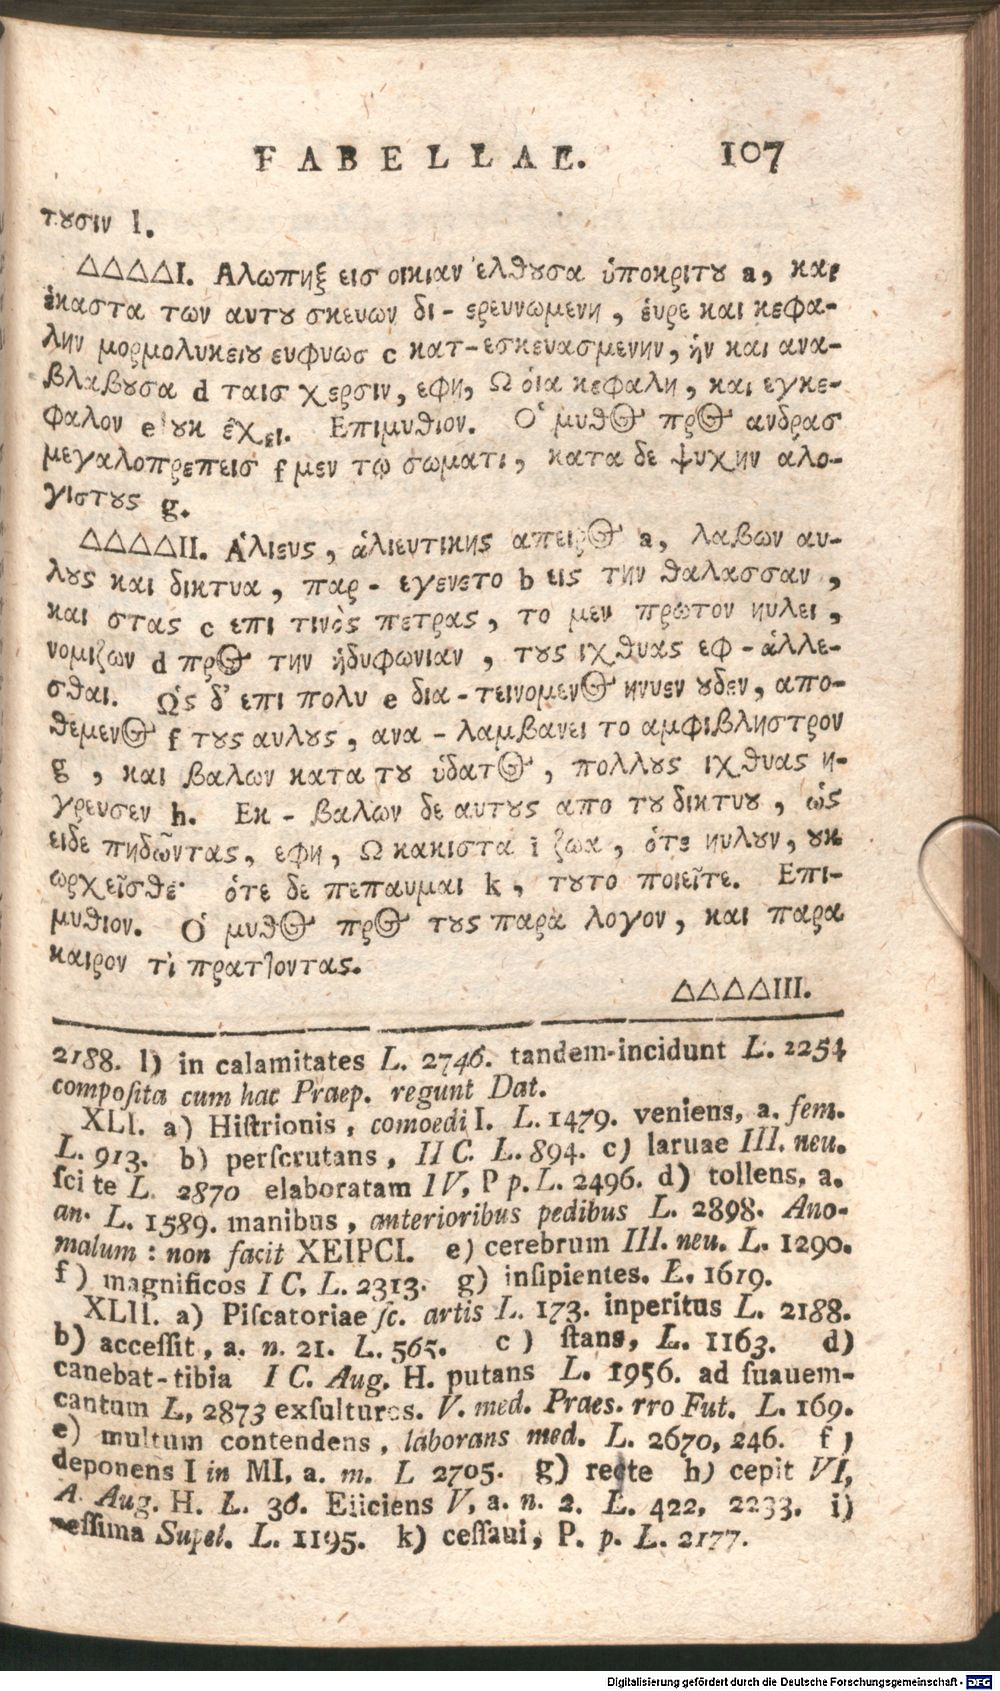 FABELLAE. 107
τȣσιν l.
ΔΔΔΔI. Αλωπηξ εισ οικιαν ἐλθȣσα ὑποκριτȣ a, και
ἑκαστα των αυτȣ σκευων δι-ερευνωμενη, ἑυρε και κεφα-
λην μορμολυκειȣ ευφυωσ c κατ-εσκευασμενην, ἡν και ανα-
βλαβȣσα d ταισ χερσιν, εφη, Ω ὁια κεφαλη, και εγκε-
φαλον e ȣκ ἐχει. Επιμυθιον. Ὁ μυθ𝟋 πρ𝟋 ανδρας
μεγαλοπρεπεισ f μεν τῳ σωματι, κατα δε ψυχην αλο-
γιστȣς g.
ΔΔΔΔII. Ἁλιευς, ἁλιευτικης απειρ𝟋 a, λαβων αυ-
λȣς και δικτυα, παρ-εγενετο b εις την θαλασσαν,
και στας c επι τινὸς πετρας, το μεν πρωτον ηυλει,
νομιζων d πρ𝟋 την ἡδυφωνιαν, τȣς ιχθυας εφ-ἁλλε-
σθαι. Ὡς δ' επι πολυ e δια-τεινομεν𝟋 ηνυεν ȣδεν, απο-
θεμεν𝟋 f τȣς αυλȣς, ανα-λαμβανει το αμφιβληστρον
g, και βαλων κατα τȣ ὑδατ𝟋, πολλȣς ιχθυας η-
γρευσεν h. Εκ-βαλων δε αυτȣς απο τȣ δικτυȣ, ὡς
ειδε πηδῶντας, εφη, Ω κακιστα i ζωα, ὁτε ηυλουν, ȣκ
ωρχεῖσθε· ὁτε δε πεπαυμαι k, τȣτο ποιεῖτε. Επι-
μυθιον. Ὁ μυθ𝟋 πρ𝟋 τȣς παρα λογον, και παρα
καιρον τὶ πραττοντας.
ΔΔΔΔIII.
2188. l) in calamitates L. 2746. tandem-incidunt L. 2254
composita cum hac Praep. regunt Dat.
XLI. a) Hiſtrionis, comoedi I. L. 1479. veniens, a. fem.
L. 913. b) perſcrutans, II C. L. 894. c) laruae III. neu.
ſcite L. 2870 elaboratam IV, P p. L. 2496. d) tollens, a.
an. L. 1589. manibus, anterioribus pedibus L. 2898. Ano-
malum: non facit ΧΕΙΡСΙ. e) cerebrum III. neu. L. 1290.
f) magnificos I C, L. 2313. g) inſipientes. L. 1619.
XLII. a) Piſcatoriae ſc. artis L. 173. inperitus L. 2188.
b) acceſſit, a. n. 21. L. 565. c) ſtans, L. 1163. d)
canebat-tibia I C. Aug. H. putans L. 1956. ad ſuauem-
cantum L, 2873 exſultures. V. med. Praes. rro Fut. L. 169.
e) multum contendens, laborans med. L. 2670, 246. f)
deponens I in MI, a. m. L 2705. g) recte h) cepit VI,
A. Aug. H. L. 36. Eiiciens V, a. n. 2. L. 422, 2233. i)
peſſima Supel. L. 1195. k) ceſſaui, P. p. L. 2177.
Digitalisierung gefördert durch die Deutsche Forschungsgemeinschaft - DFG